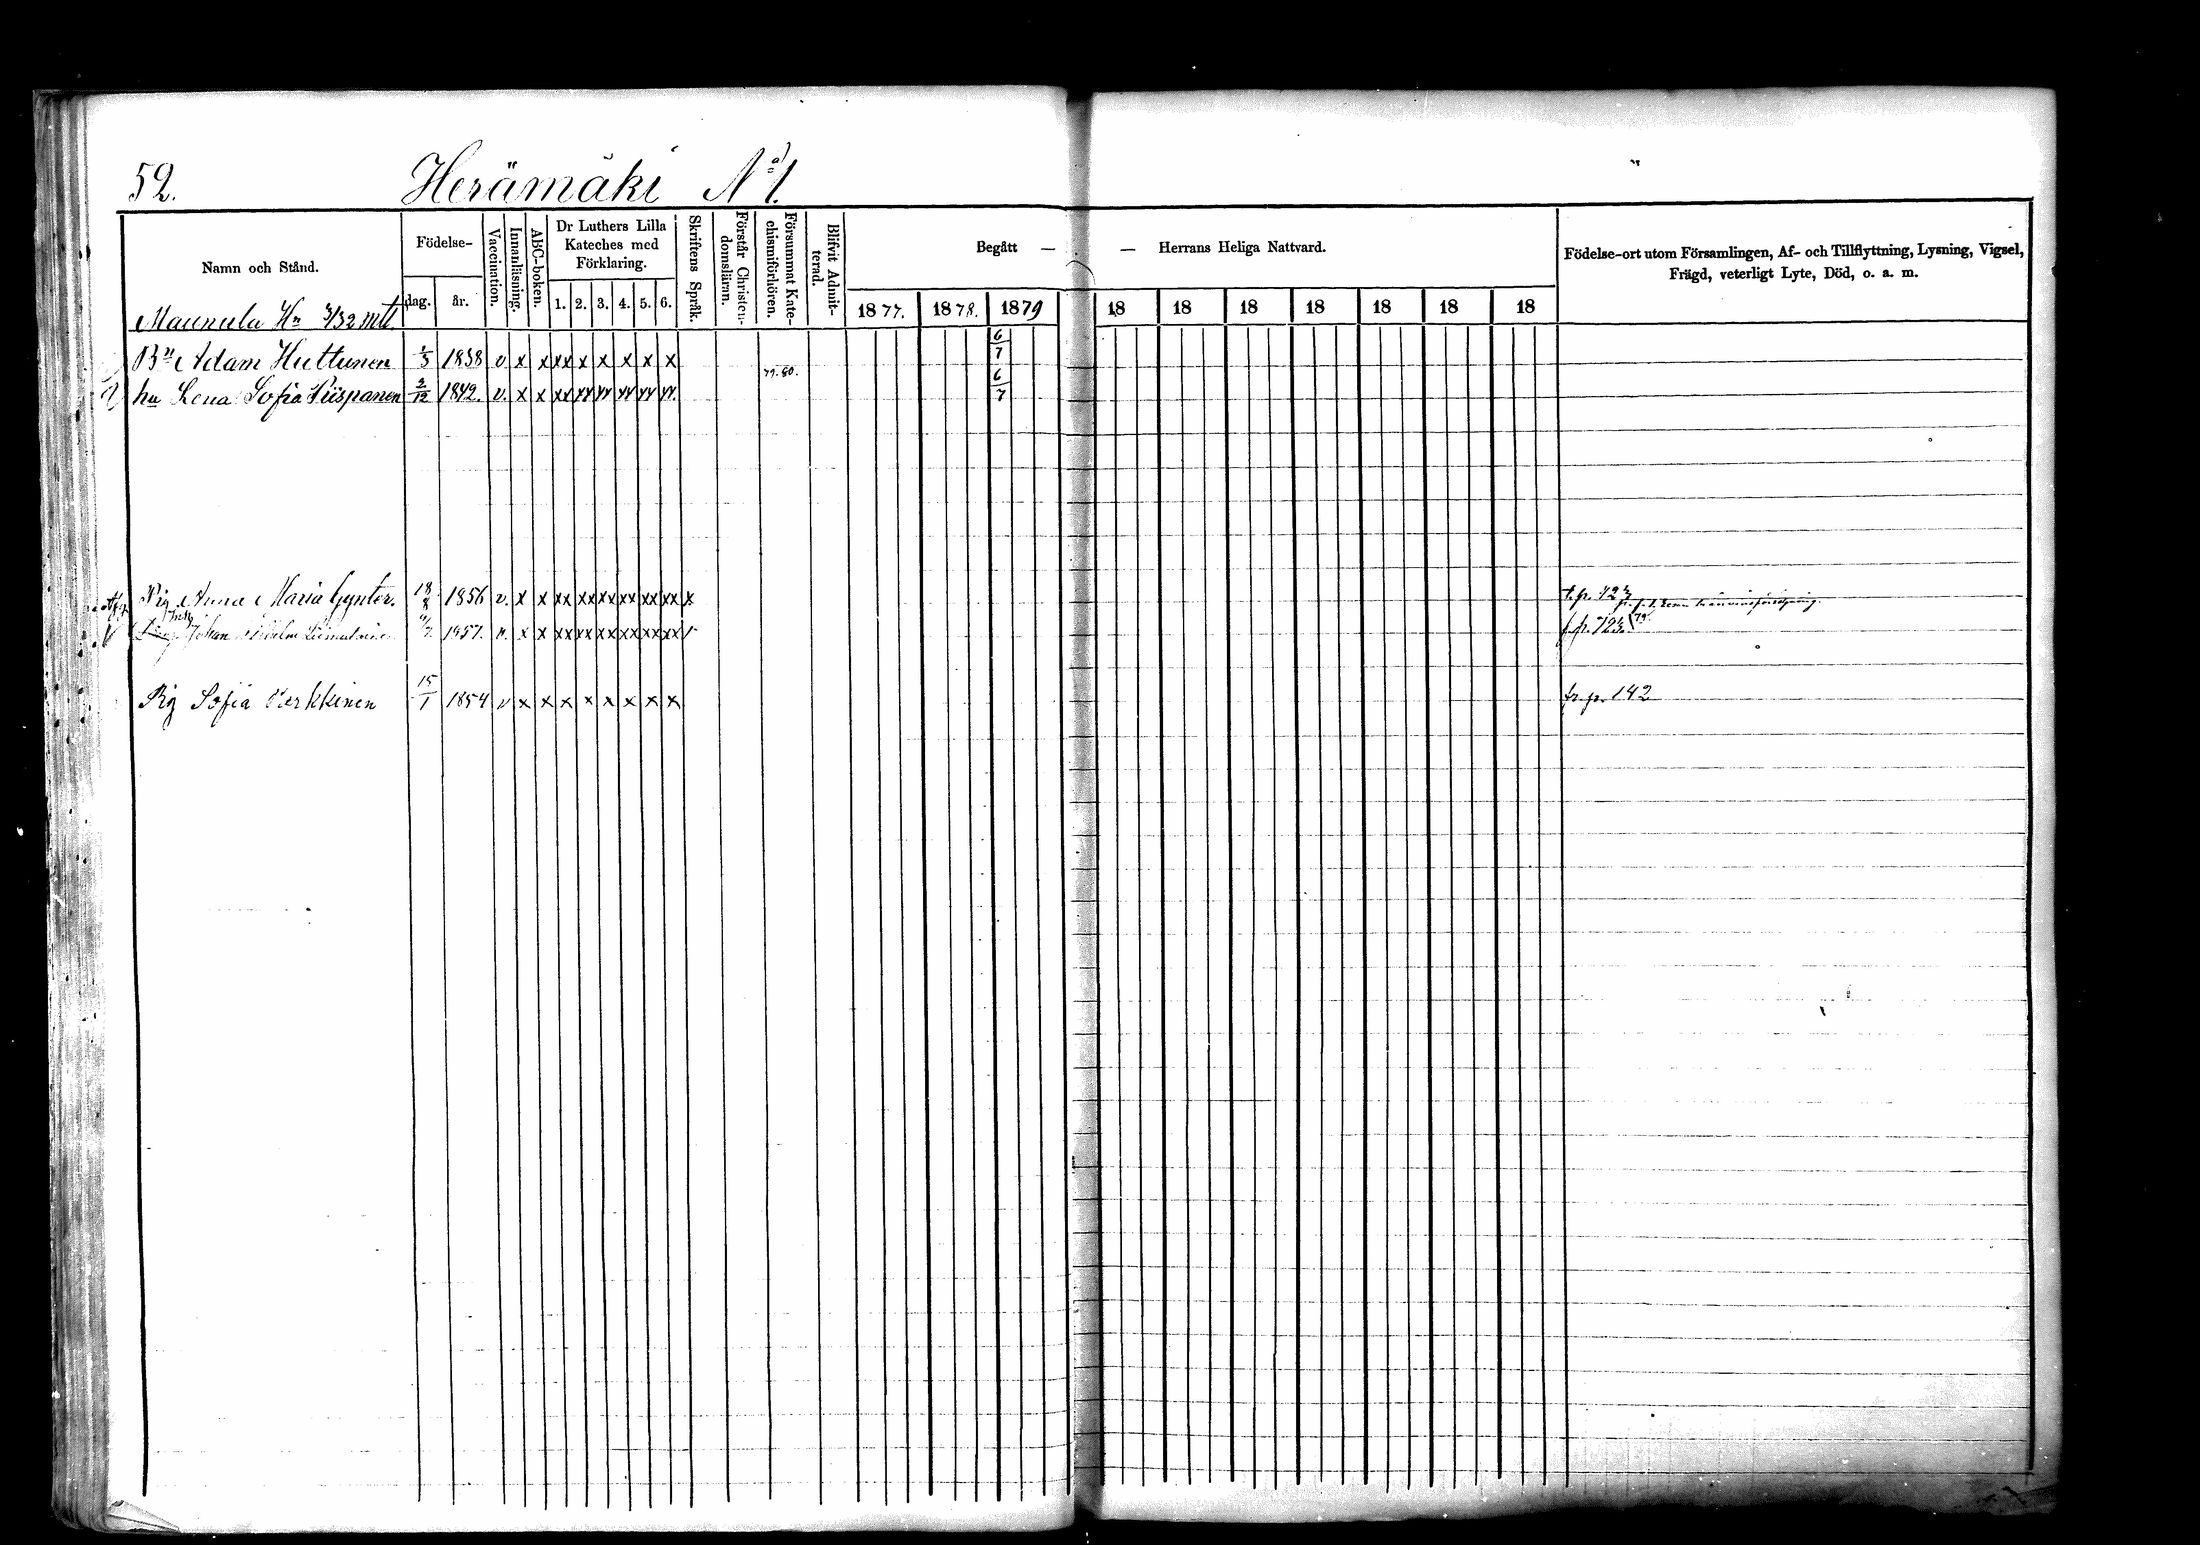 52. Herämäki No 1.
Namn och Stånd.
Födelse-
dag.
år.
Vaccination.
Innanläsning.
ABC-boken.
Dr Luthers Lilla
Kateches med
Förklaring.
1. 2. 3. 4. 5. 6.
Skriftens Språk.
Förstår Christen-
domsläran.
Försummat Kate-
chismiförhören.
Blifvit Admit-
terad.
Begått — — Herrans Heliga Nattvard.
1877. 1878. 1879 18 18 18 18 18 18 18
Födelse-ort utom Församlingen, Af- och Tillflyttning, Lysning, Vigsel,
Frägd, veterligt Lyte, Död, o. a. m.
Maunula Hn 3/32 mtl
Bn Adam Huttunen 1/3 1838 v x x xx x x x x x 6/7
79.80.
hu Lena Sofia Piispanen 2/12 1842. v. x x xx xx xx xx xx xx. 6/7
Pig Anna Maria Gynter. 18/8 1856 v. x x xx xx xx xx xx xx x t.p. 123
Johan 1857. v. x x xx xx xx xx xx xx f.p. 123. 79
Pig Sofia 15/1 1854 v x x x x x x x x fr. p. 142